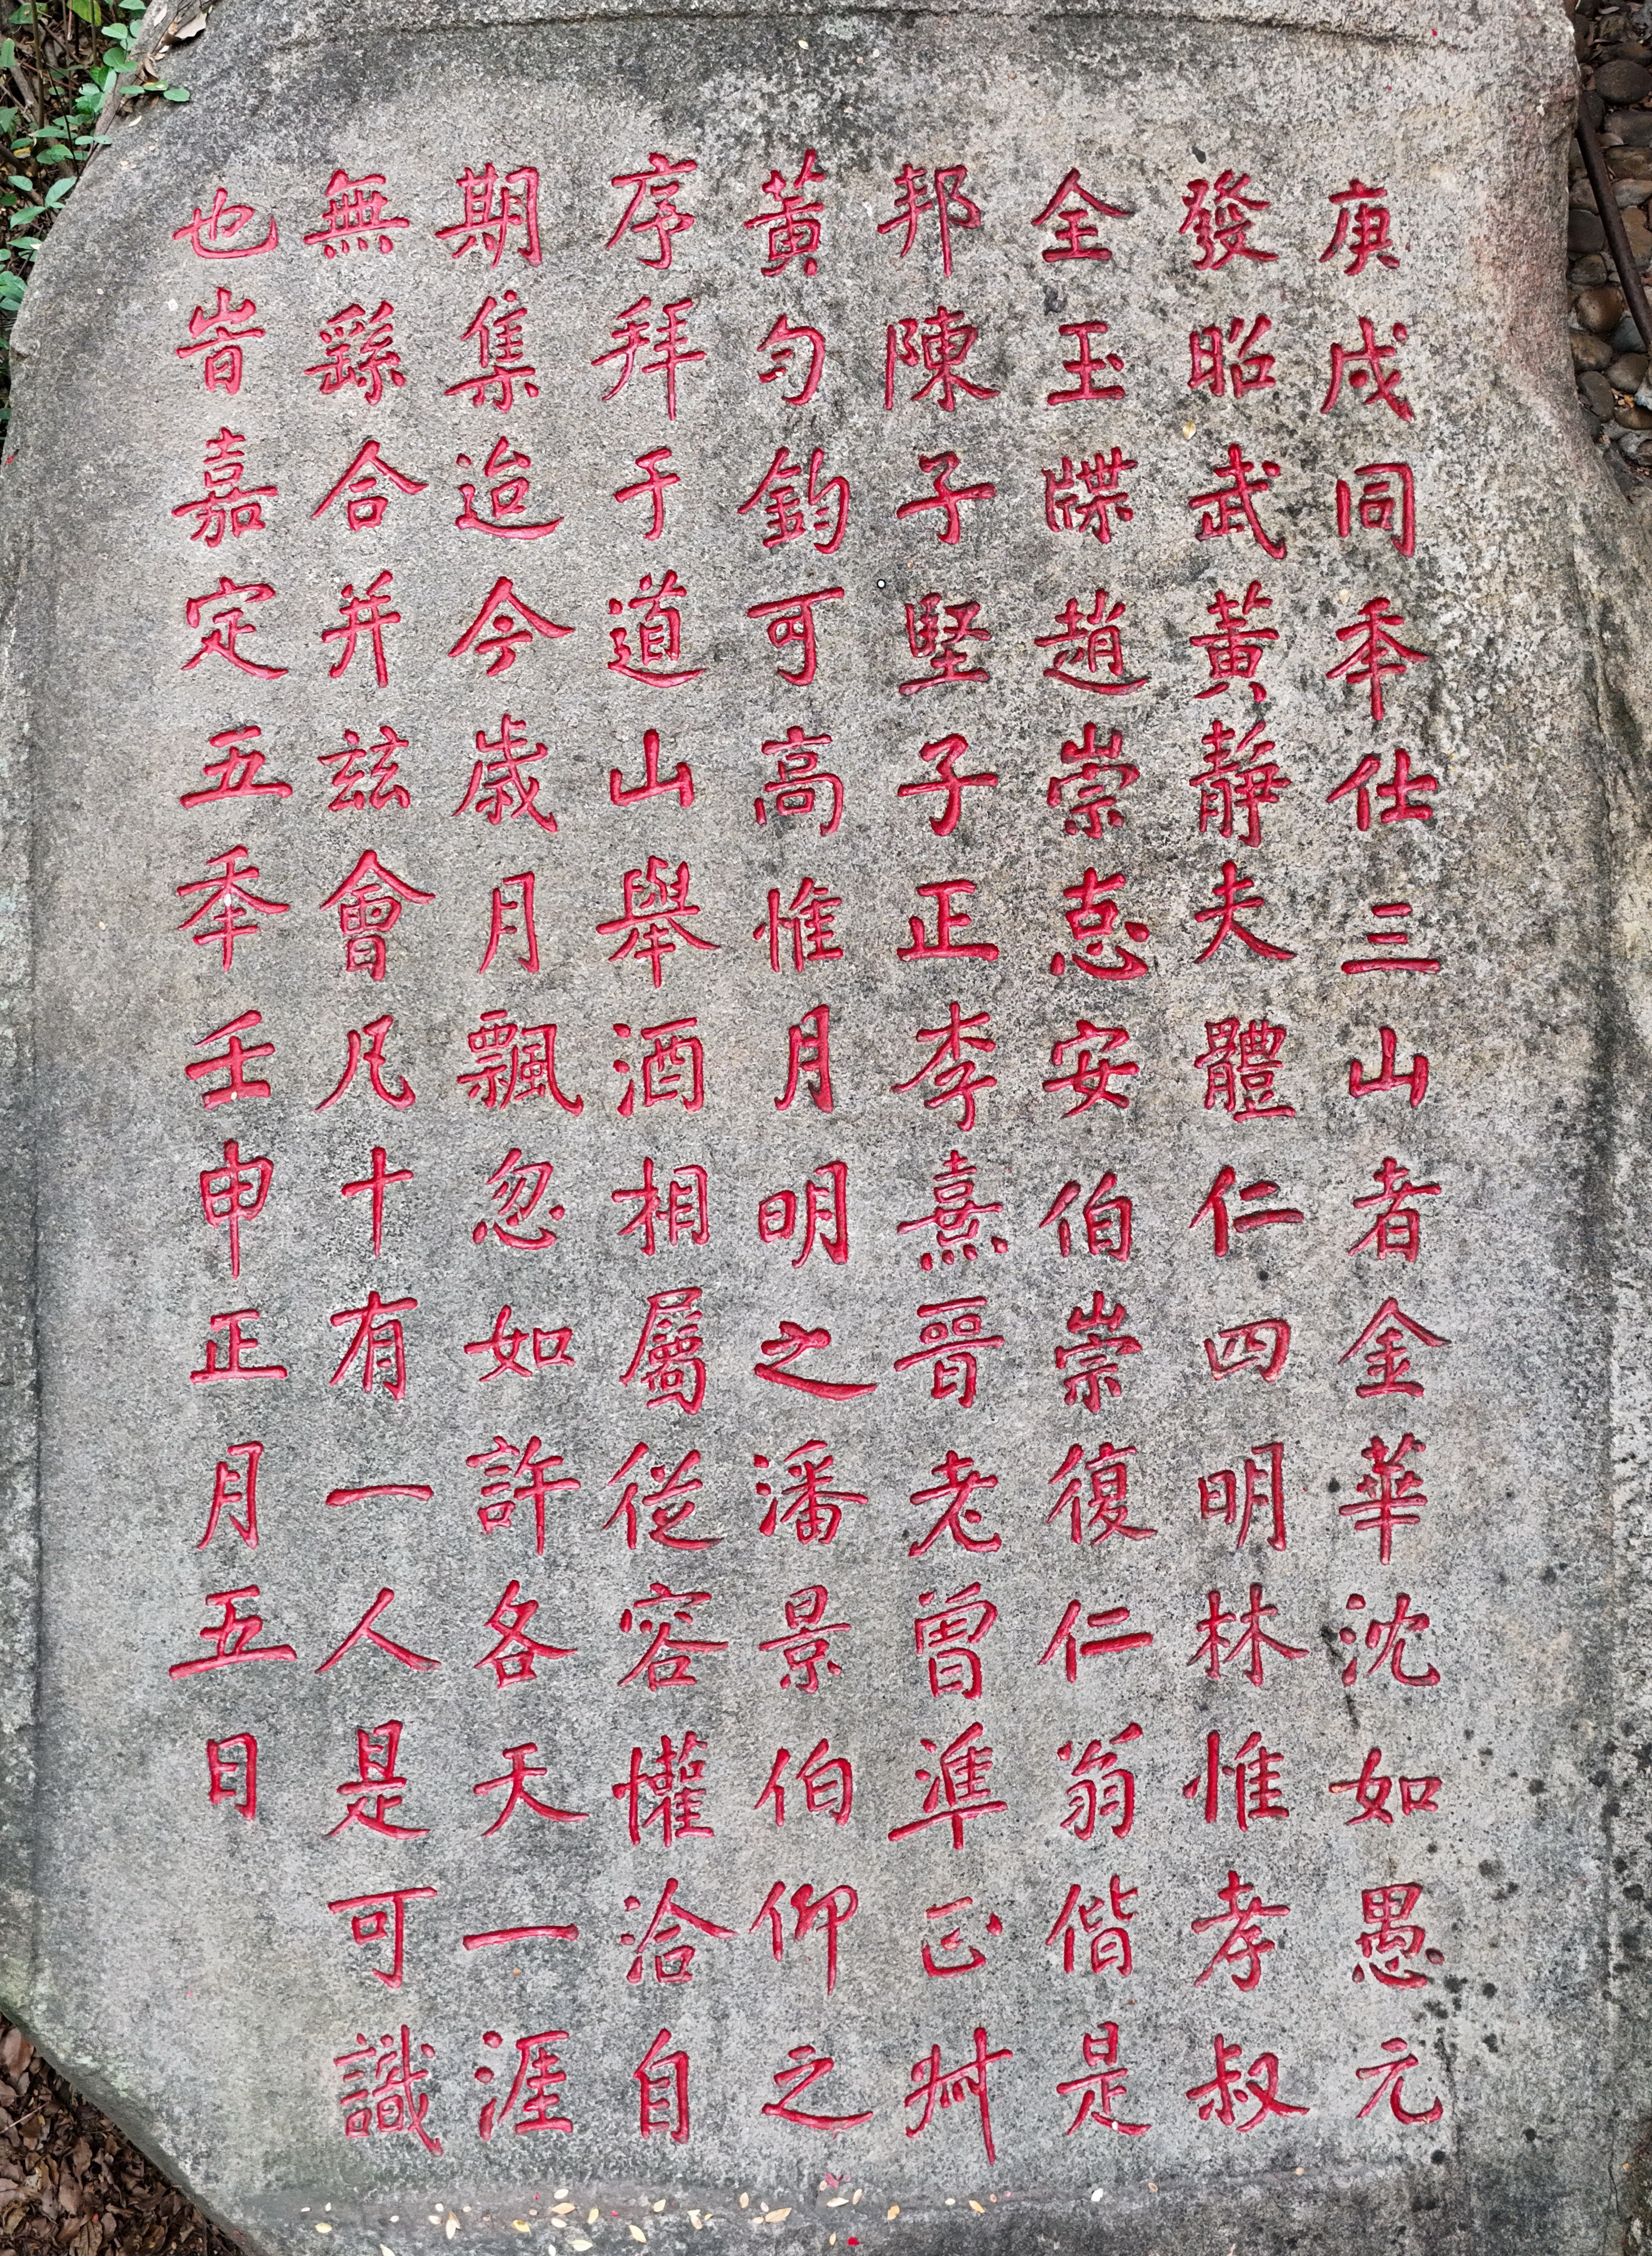 庚戌同秊仕三山者金華沈如愚元
發昭武黃靜夫體仁四明林惟孝叔
全玉牒趙崇惪安伯崇復仁翁偕是
邦陳子堅子正李熹晉老曾準正叔
黃勻鈞可高惟月明之潘景伯仰之
序拜于道山舉酒相屬從容懽洽自
期集迨今歲月飄忽如許各天一涯
無繇合并兹會凡十有一人是可識
也旹嘉定五秊壬申正月五日